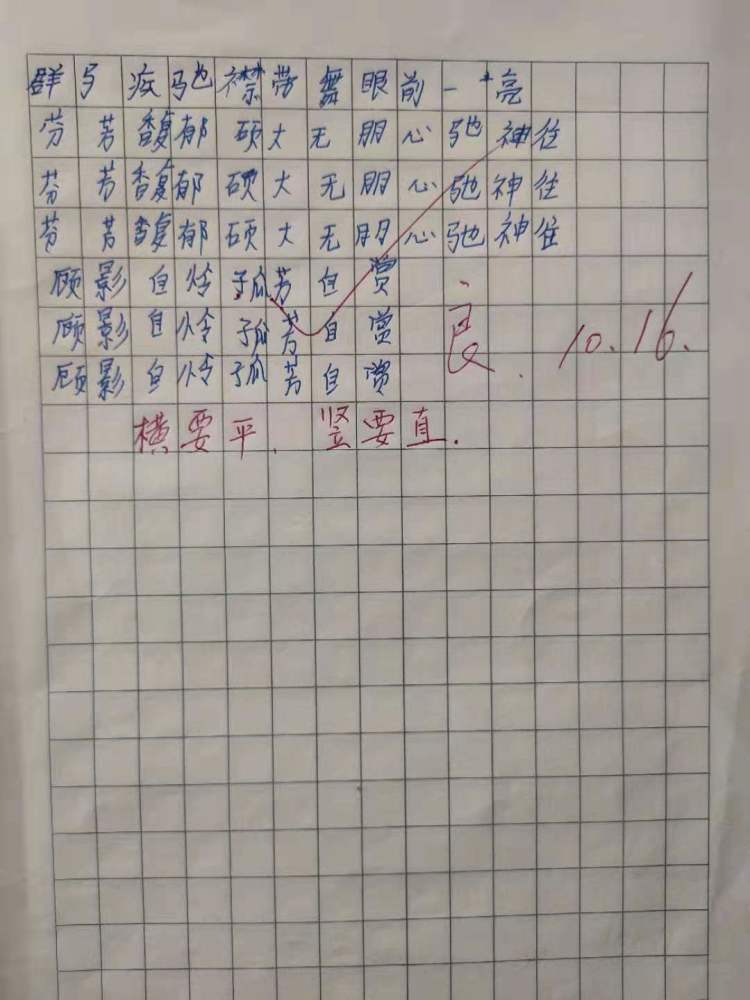 群马疾驰襟带舞眼前一亮
芬芳馥郁硕大无朋心驰神往
芬芳馥郁硕大无朋心驰神往
芬芳馥郁硕大无朋心驰神往
顾影自怜孤芳自赏
顾影自怜孤芳自赏
顾影自怜孤芳自赏
良. 10.16.
横要平. 竖要直.